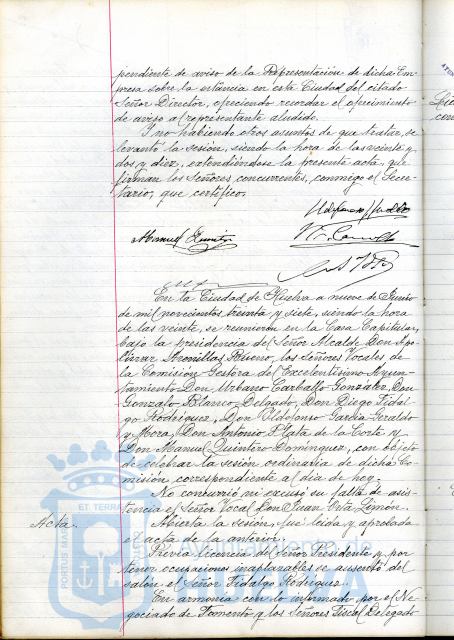 pendiente de aviso de la Representación de dicha Em-
presa sobre la estancia en esta Ciudad del citado
Señor Director, ofreciendo recordar el ofrecimiento
de aviso al representante aludido.
Y no habiendo otros asuntos de que tratar, se
levantó la sesión, siendo la hora de las veinte y
dos y diez, extendiéndose la presente acta, que
firman los Señores concurrentes, conmigo el Secre-
tario, que certifico.
Manuel Quintero
En la Ciudad de Huelva a nueve de Junio
de mil novecientos treinta y siete, siendo la hora
de las veinte, se reunieron en la Casa Capitular,
bajo la presidencia del Señor Alcalde Don Apo-
linar Arenillas Bueno, los Señores Vocales de
la Comisión Gestora del Excelentísimo Ayun-
tamiento Don Urbano Carballo González, Don
Gonzalo Blanco Delgado, Don Diego Fidal-
go Rodríguez, Don Ildefonso García Geraldo
y Mora, Don Antonio Plata de la Corte y
Don Manuel Quintero Domínguez, con objeto
de celebrar la sesión ordinaria de dicha Co-
misión correspondiente al día de hoy.
No concurrió ni excusó su falta de asis-
tencia el Señor Vocal Don Juan Limón.
Acta. Abierta la sesión, fué leída y aprobada
el acta de la anterior.
Previa licencia del Señor Presidente y por
tener ocupaciones inaplazables se ausentó del
salón el Señor Fidalgo Rodríguez.
En armonía con lo informado por el Ne-
gociado de Fomento y los Señores Fiscal Delegado
PORTUS MARIS ET TERRAE